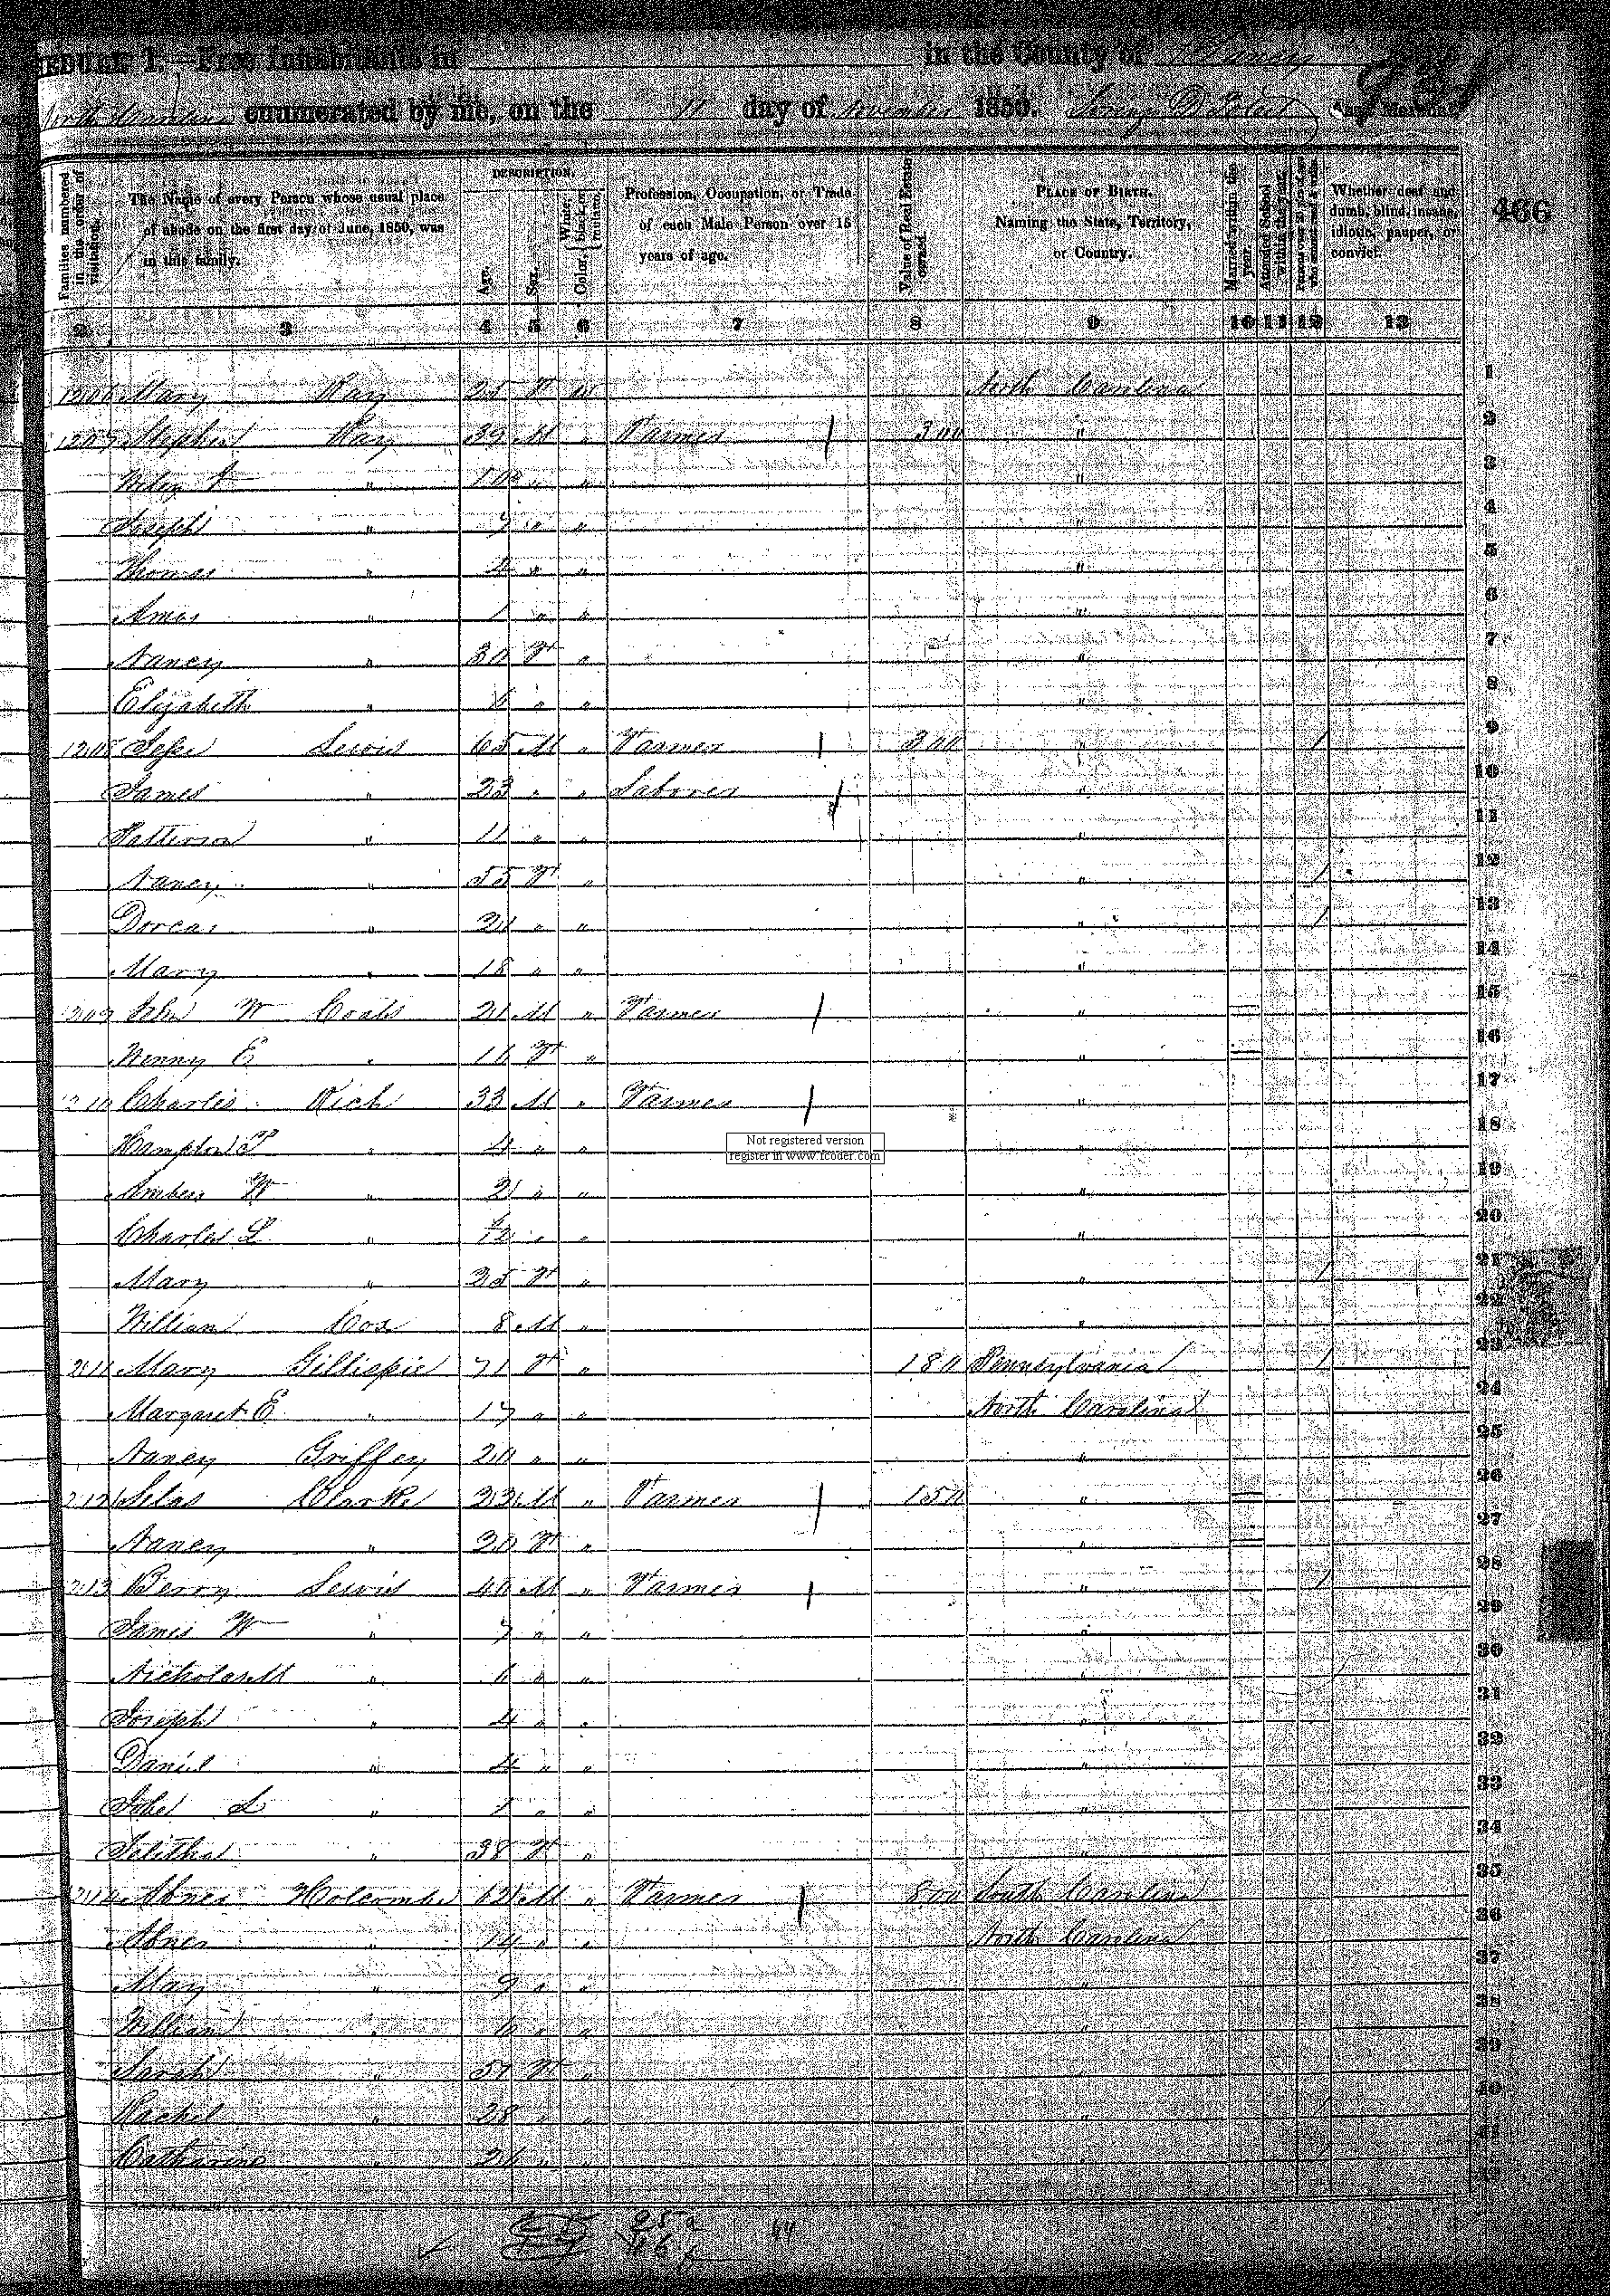 EDULE I.—Free Inhabitants in in the County of Yancey
North Carolina enumerated by me, on the day of November 1850.
466
Families numbered in the order of visitation.
The Name of every Person whose usual place of abode on the first day of June, 1850, was in this family.
DESCRIPTION.
Age.
Sex.
Color, White, black, or mulatto.
Profession, Occupation, or Trade of each Male Person over 15 years of age.
Value of Real Estate owned.
PLACE OF BIRTH. Naming the State, Territory, or Country.
Married within the year.
Attended School within the year.
Persons over 20 y'rs of age who cannot read & write.
Whether deaf and dumb, blind, insane, idiotic, pauper, or convict.
2 3 4 5 6 7 8 9 10 11 12 13
1206 Mary Ray 25 F W North Carolina 1
1207 Stephen Ray 39 M " Farmer 300 " 2
" " " " 3
Joseph " 7 " " " 4
Thomas " " " " 5
Amos " 1 " " " 6
Nancy " 30 F " " 7
Elizabeth " 6 " " " 8
1208 Lewis 65 M " Farmer 300 " 1 9
James " 23 " " Laborer " 10
Patterson " 11 " " " 11
Nancy " 55 F " " 1 12
Dorcas " 21 " " " 1 13
Mary " 18 " " " 14
1209 John W Coats 21 M " Farmer " 15
E " 16 F " " 16
1210 Charles Rich 33 M " Farmer " 17
Hampton P " 4 " " " 18
W " 2 " " " 19
Charles L " " " " 20
Mary " 35 F " " 1 21
William Cox 8 M " " 22
1211 Mary Gillispie 71 F " 180 Pennsylvania 1 23
Margaret E " 17 " " North Carolina 24
Nancy Griffey 20 " " " 25
1212 Silas Clarke 23 M " Farmer 150 " 26
Nancy " 20 F " " 27
1213 Berry Lewis 40 M " Farmer " 1 28
James W " 7 " " " 29
Nicholas M " 6 " " " 30
Joseph " 4 " " " 31
Daniel " 4 " " " 32
John L " 1 " " " 33
Talitha " 38 F " " 34
1214 Abner Holcombe 62 M " Farmer 800 South Carolina 35
Abner " 14 " " North Carolina 36
" 9 " " " 37
William " 6 " " " 38
Sarah " 57 F " 39
Rachel " 28 " " " 40
Catharine " " " " 41
42
Not registered version
register in www.fcoder.com